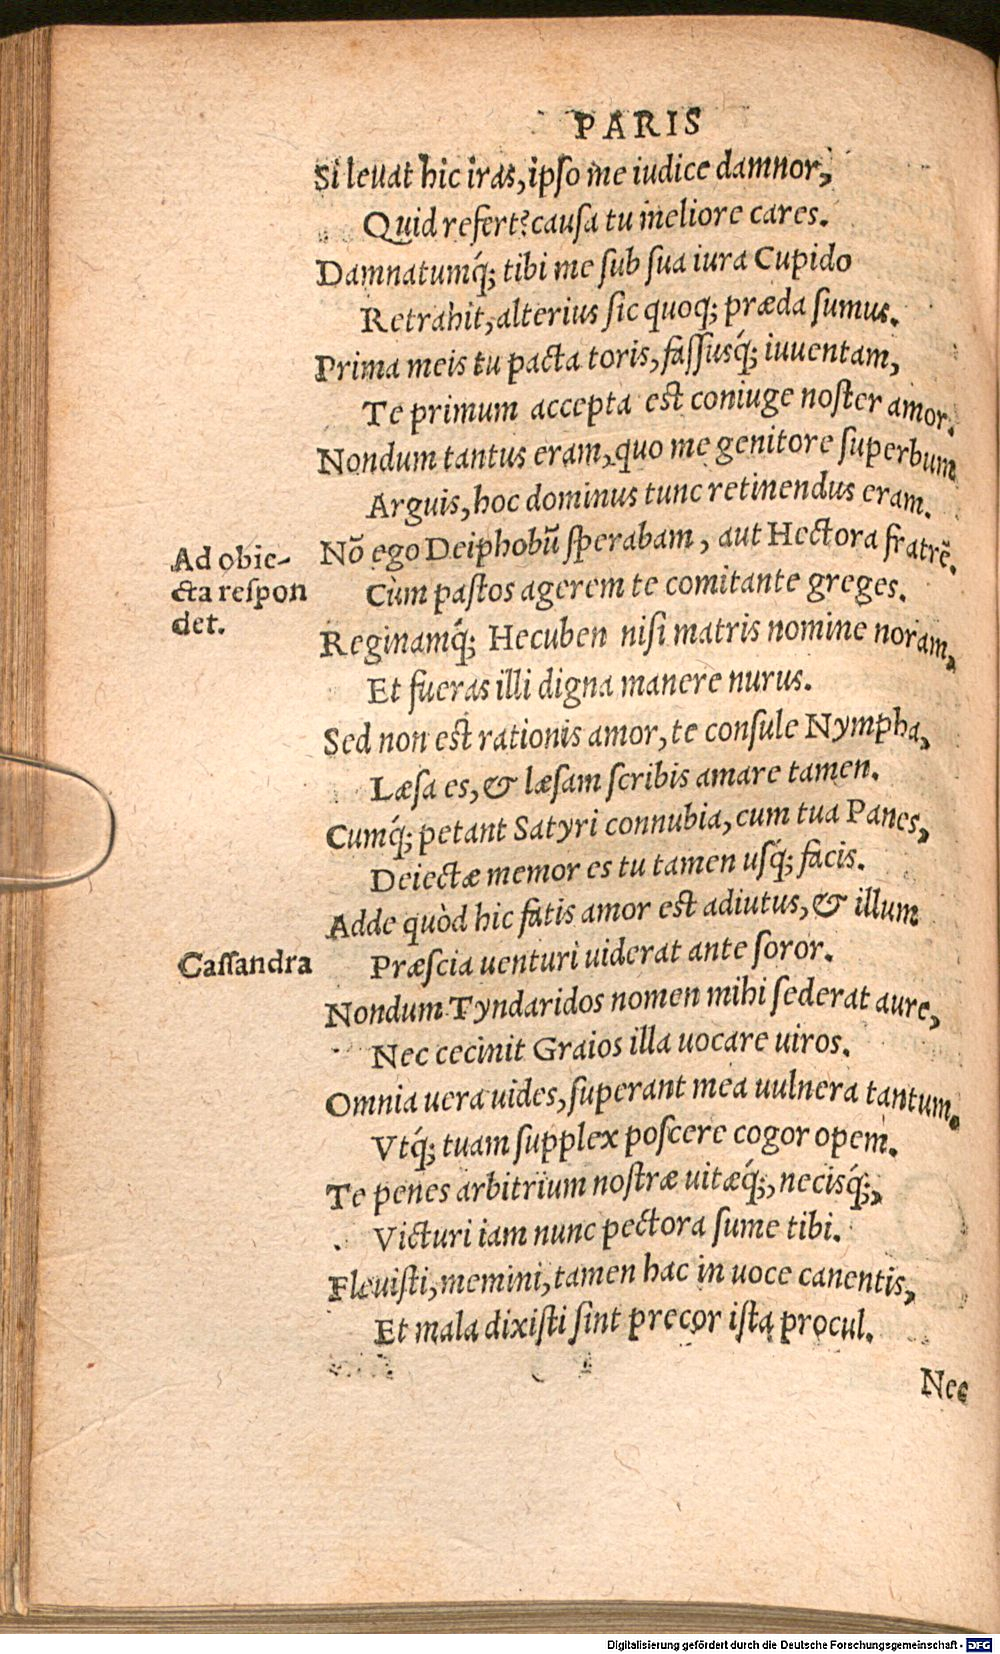 PARIS
Si leuat hic iras, ipso me iudice damnor,
Quid refert? causa tu meliore cares.
Damnatumq́; tibi me sub sua iura Cupido
Retrahit, alterius sic quoq; præda sumus.
Prima meis tu pacta toris, fassusq́; iuuentam,
Te primum accepta est coniuge noster amor.
Nondum tantus eram, quo me genitore superbum
Arguis, hoc dominus tunc retinendus eram.
Nõ ego Deiphobũ sperabam, aut Hectora fratrẽ.
Ad obie-
cta respon
det.
Cùm pastos agerem te comitante greges.
Reginamq́; Hecuben nisi matris nomine noram,
Et fueras illi digna manere nurus.
Sed non est rationis amor, te consule Nympha,
Læsa es, & læsam scribis amare tamen.
Cumq́; petant Satyri connubia, cum tua Panes,
Deiectæ memor es tu tamen usq́; facis.
Adde quòd hic fatis amor est adiutus, & illum
Cassandra
Præscia uenturi uiderat ante soror.
Nondum Tyndaridos nomen mihi sederat aure,
Nec cecinit Graios illa uocare uiros.
Omnia uera uides, superant mea uulnera tantum.
Vtq́; tuam supplex poscere cogor opem.
Te penes arbitrium nostræ uitæq́;, necisq́;,
Victuri iam nunc pectora sume tibi.
Fleuisti, memini, tamen hac in uoce canentis,
Et mala dixisti sint precor ista procul.
Nec
Digitalisierung gefördert durch die Deutsche Forschungsgemeinschaft - DFG